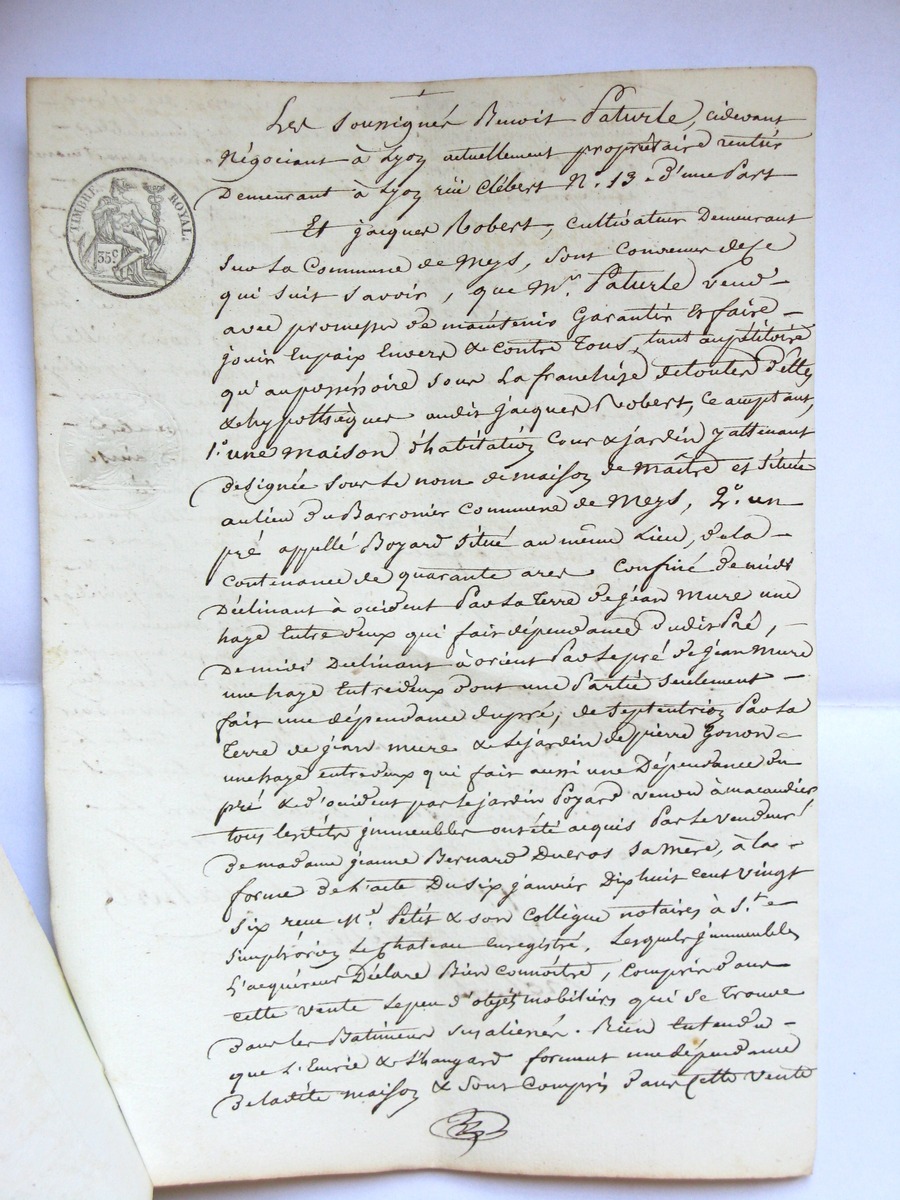 TIMBRE ROYAL.
35c
Les soussignés Benoit Paturle, cidevant
Négociant à Lyon actuellement propriétaire rentier
Demeurant à Lyon rüe Clébert N.° 13. d'une Part
Et jacques Robert, cultivateur Demeurant
sur la Commune de Meys, sont Convenus de ce
qui suit savoir, que Mr. Paturle vend
avec promesse de maintenir Garantir & faire
jouir En paix Envers & contre Tous, tant au pétitoire
qu'au possessoire sous La franchise de toutes dettes
& hypothèques audit jacques Robert, ce acceptant,
1.° une maison d'habitation Cour & jardin y attenant
designée sous le nom de maison de Maître et Située
au lieu du Barronier Commune de Meys, 2.° un
pré appellé Boyard Situé au même Lieu, de la
Contenance de quarante ares Confiné de midi
Déclinant à occident Par La Terre de jean Mure une
haye Entredeux qui fait dépendance dudit Pré,
De midi Declinant à orient Par le pré de jean Mure
une haye Entredeux dont une Partie seulement
fait une dépendance du pré, de Septentrion Par La
Terre de jean mure & Le jardin de pierre Gonon
une haye entredeux qui fait aussi une Dépendance du
pré & d'occident par le jardin Poyard vendu à
tous lesdits immeubles ont été acquis Par Le vendeur
de madame jeanne Bernard Ducros sa Mère, à la
forme de L'acte Du six janvier Dix huit Cent vingt
six reçu Me. Petit & son Collègue notaires à St.e
Simphorien Le Chateau Enregistré, Lesquels immeubles
L'acquéreur Déclare Bien Connoître, Compris dans
cette vente Le peu d'objets mobiliers qui se Trouve
dans les Batimens sus alienés. Bien Entendu
que L'Ecurie & L'hangard forment une dépendance
de ladite maison & sont Compris dans Cette Vente